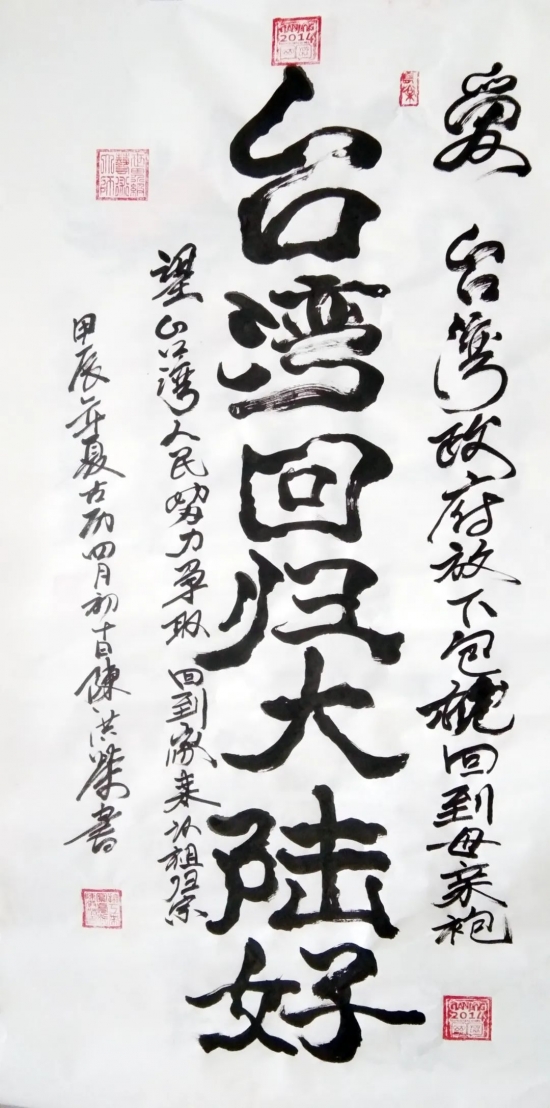 愛 台灣政府放下包袱回到母亲抱
台湾回归大陆好
望台湾人民努力争取回到家来认祖归宗
甲辰年夏古历四月初十日陳洪荣書
NANJING
2014
NANJING
2014